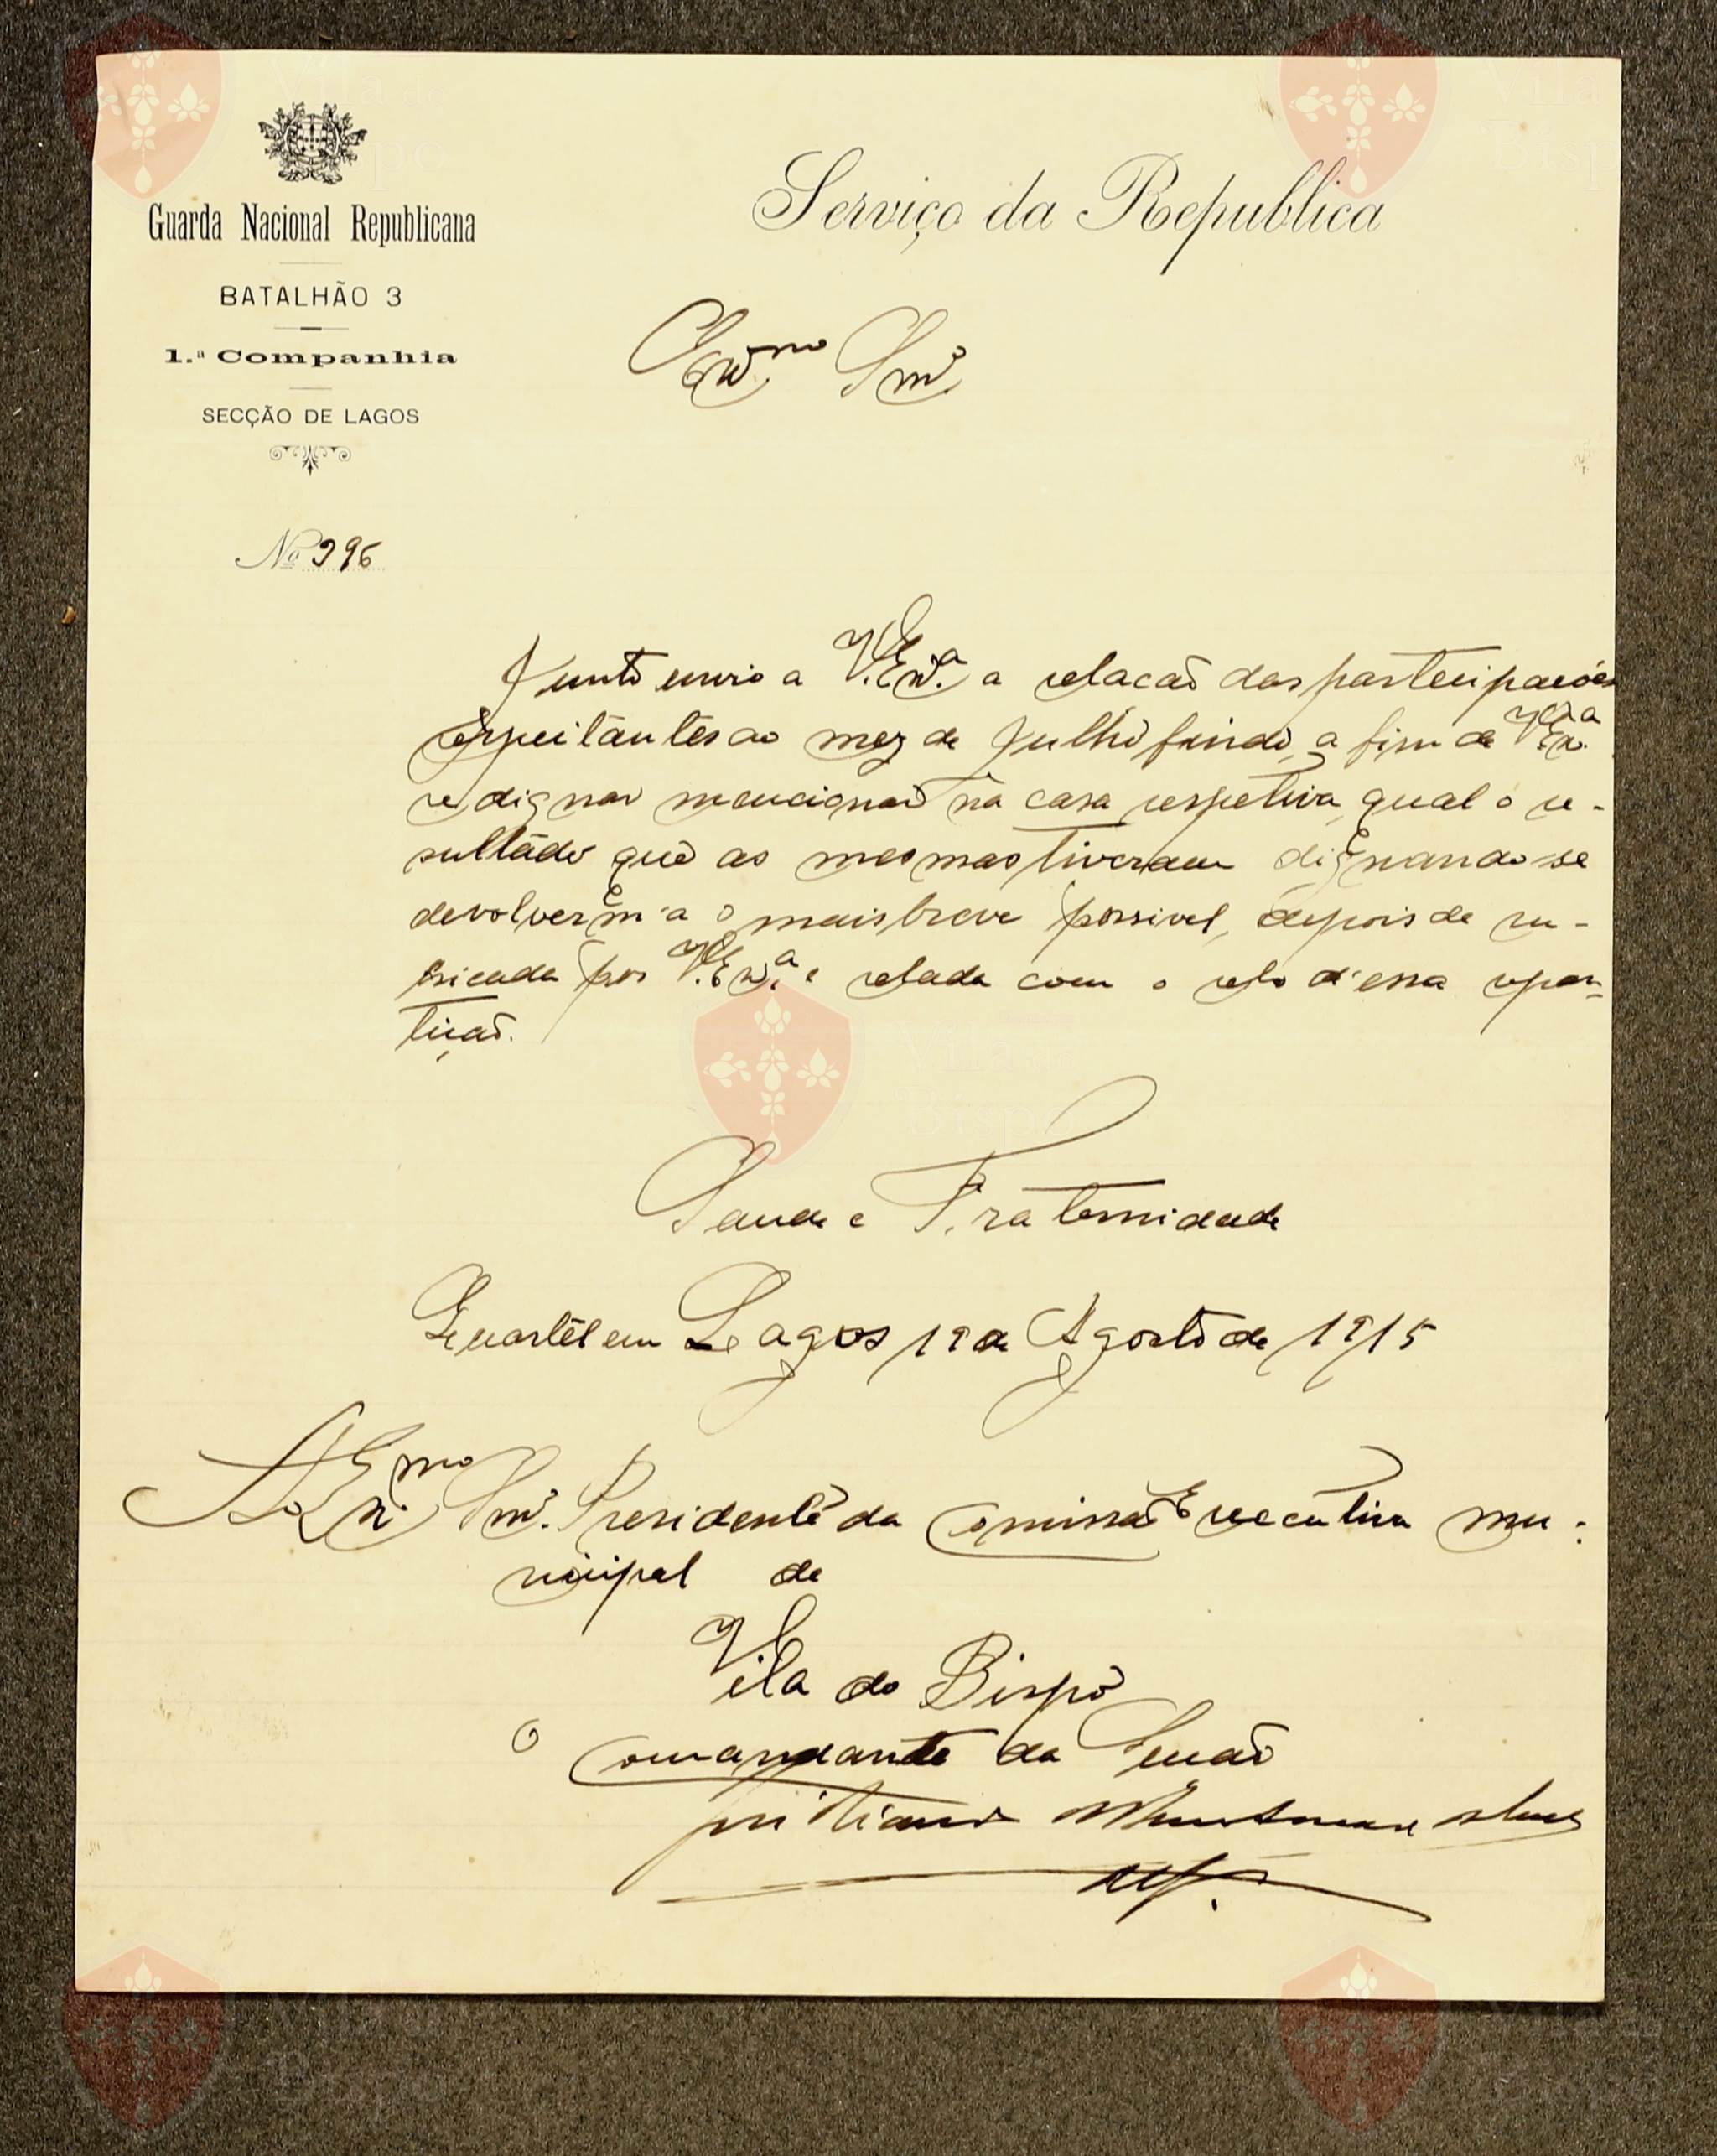 Guarda Nacional Republicana
BATALHÃO 3
1.ª Companhia
SECÇÃO DE LAGOS
Serviço da Republica
Exmo Snr
Nº 396
Junto envio a V. Exa. a relacaõ das partecipacões
respeitantes ao mez de Julho findo, a fim de V. Exa.
se dignar mencionar na casa respetiva, qual o re-
sultado que as mesmas tiveram dignando-se
devolver-m'a o mais breve possivel, depois de ru-
bricada por V. Exa. e selada com o selo d'essa repar-
tição.
Saude e Fraternidade
Quartel em Lagos 1 de Agosto de 1915
Ao Exmo Snr. Presidente da Comissaõ Executiva mu-
nicipal de
Vila do Bispo
O Comandante da Secaõ
Vila do Bispo